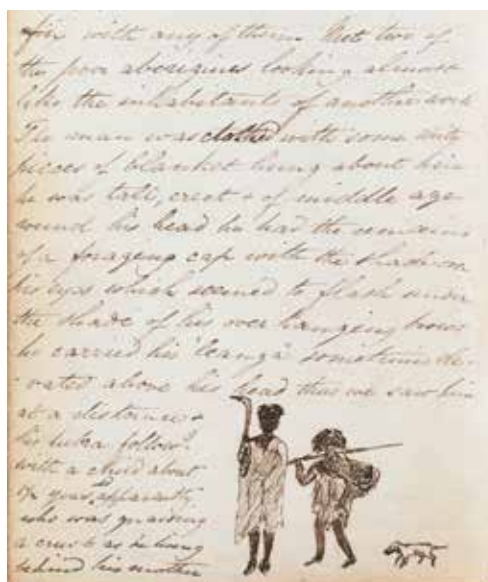 for with any of them. Met two of
the poor aborigines looking almost
like the inhabitants of another world
The man was clothed with some dirty
pieces of blanket hung about him
he was tall, erect & of middle age
round his head he had the remains
of a foraging cap with the shade on
his eyes which seemed to flash under
the shade of his over hanging brows
he carried his 'leanga' sometimes ele-
vated above his head thus we saw him
at a distance &
his lubra follow.g
with a child about
years, apparently
who was gnawing
a crust as he hung
behind his mother